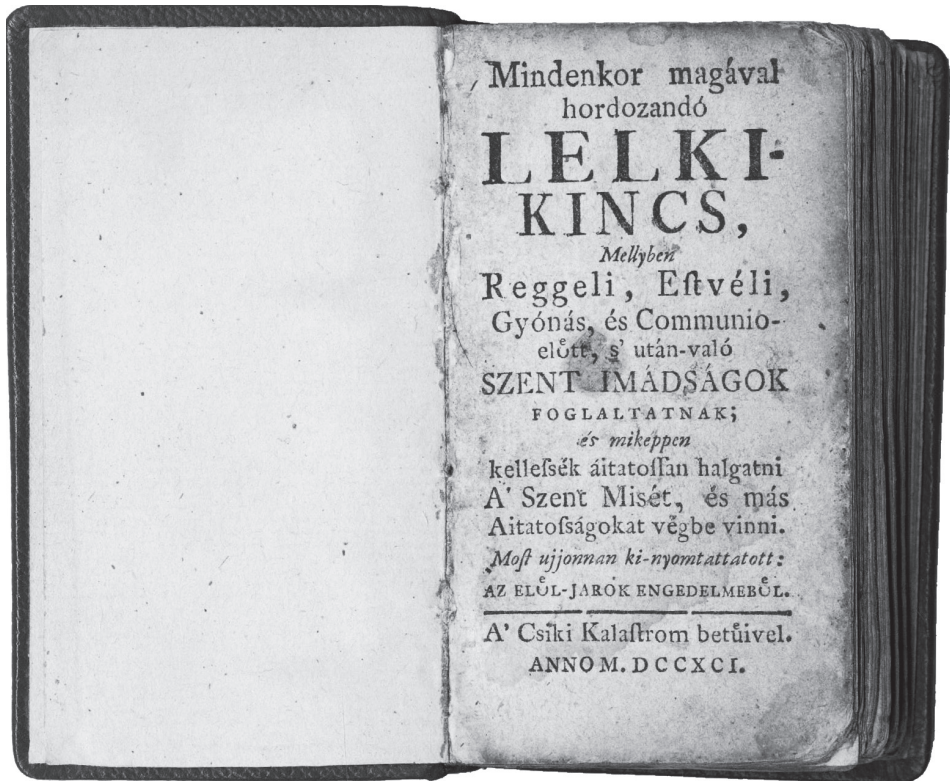 Mindenkor magával
hordozandó
LELKI-
KINCS,
Mellyben
Reggeli, Eſtvéli,
Gyónás, és Communio-
elo&#x0364;tt, s' után-való
SZENT IMÁDSÁGOK
FOGLALTATNAK;
és miképpen
kelleſsék áitatoſſan halgatni
A' Szent Misét, és más
Aitatoſságokat végbe vinni.
Moſt ujjonnan ki-nyomtattatott:
AZ ELOͤL-JARÓK ENGEDELMEBOͤL.
A' Csíki Kalaſtrom betuͤivel.
ANNO M. DCCXCI.